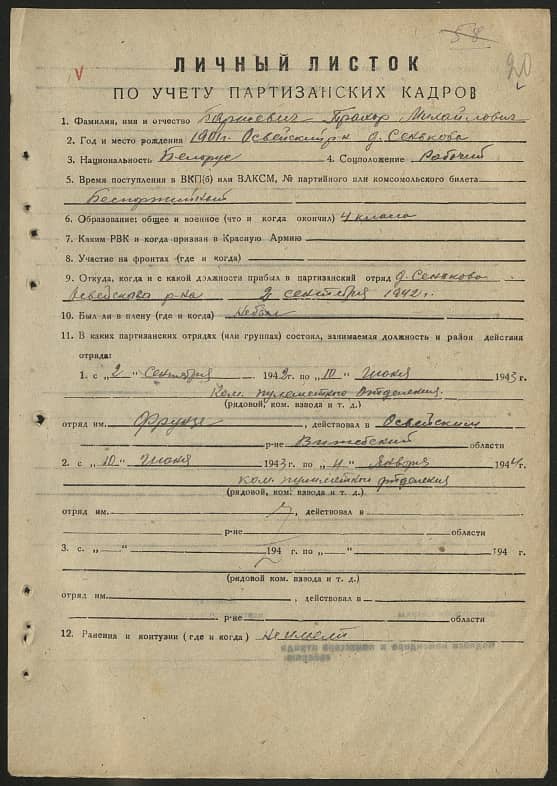 58
20
v
ЛИЧНЫЙ ЛИСТОК
ПО УЧЕТУ ПАРТИЗАНСКИХ КАДРОВ
1. Фамилия, имя и отчество Михайлович
2. Год и место рождения 1901г. Освейский р-н д. Сеньково
3. Национальность Белорус 4. Соцположение Рабочий
5. Время поступления в ВКП(б) или ВЛКСМ, № партийного или комсомольского билета
Беспартийный
6. Образование: общее и военное (что и когда окончил) 4 класса
7. Каким РВК и когда призван в Красную Армию
8. Участие на фронтах (где и когда)
9. Откуда, когда и с какой должности прибыл в партизанский отряд д. Сеньково
Освейского р-на 2 сентября 1942 г.
10. Был ли в плену (где и когда) Небыл
11. В каких партизанских отрядах (или группах) состоял, занимаемая должность и район действия
отряда:
1. с „2“ Сентября 1942 г. по „10“ Июня 1943 г.
Ком. пулеметного отделения.
(рядовой, ком. взвода и т. д.)
отряд им. Фрунзе, действовал в Освейским
р-не Витебский области
2. с „10“ Июня 1943 г. по „4“ Января 1944 г.
ком. пулеметного отделения
(рядовой, ком. взвода и т. д.)
отряд им. , действовал в
р-не области
3. с „ “ 194 г. по „ “ 194 г.
(рядовой ком. взвода и т. д.)
отряд им. , действовал в
р-не области
12. Ранения и контузии (где и когда) Не имеет